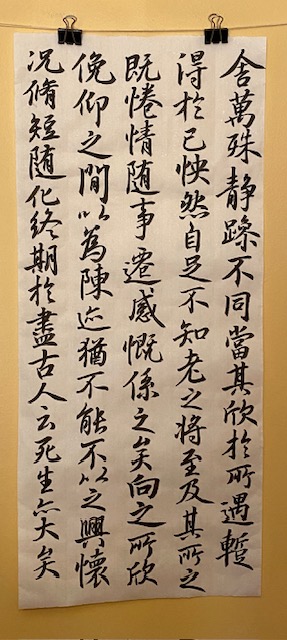 舍萬殊静躁不同當其欣於所遇蹔
得於己怏然自足不知老之將至及其所之
既惓情随事遷感慨係之矣向之所欣
俛仰之間以為陳迹猶不能不以之興懷
况脩短随化終期於盡古人云死生亦大矣